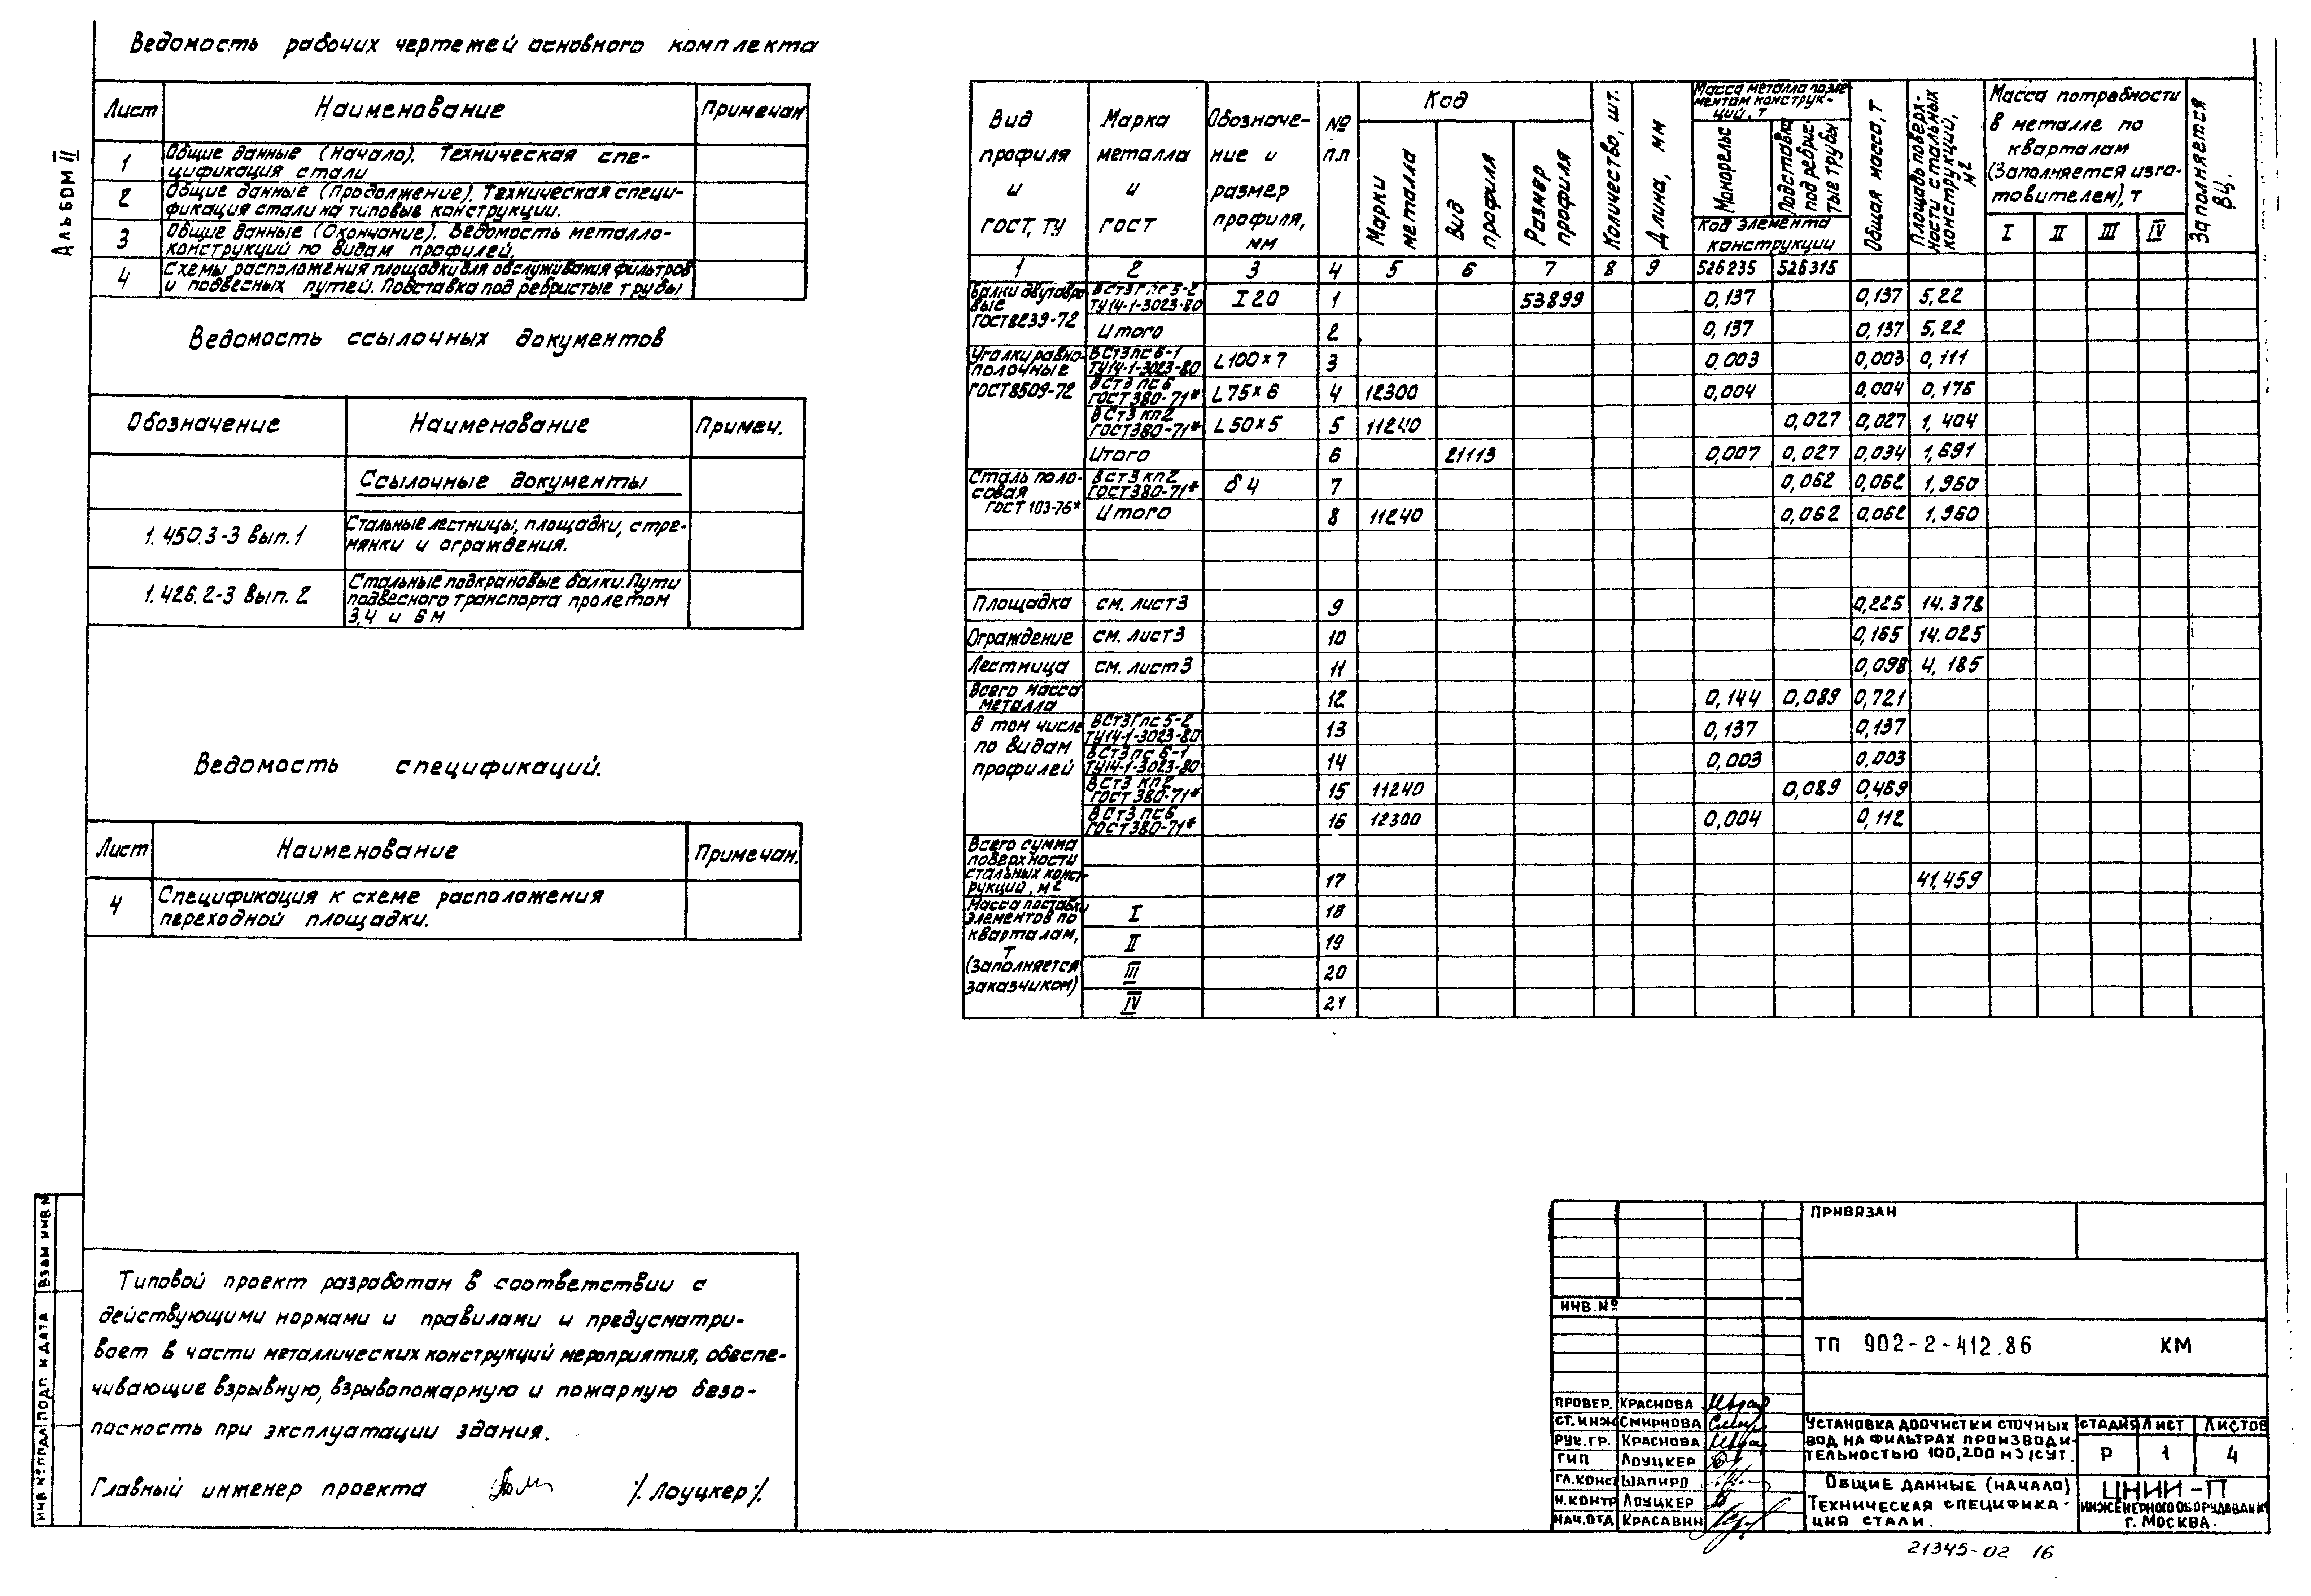 Альбом II
Ведомость рабочих чертежей основного комплекта
Лист Наименование Примечан
1 Общие данные (Начало). Техническая спе-
цификация стали
2 Общие данные (Продолжение). Техническая специ-
фикация стали на типовые конструкции.
3 Общие данные (Окончание). Ведомость металло-
конструкций по видам профилей.
4 Схемы расположения площадки для обслуживания фильтров
и подвесных путей. Подставка под ребристые трубы
Ведомость ссылочных документов
Обозначение Наименование Примеч.
Ссылочные документы
1.450.3-3 вып.1 Стальные лестницы, площадки, стре-
мянки и ограждения.
1.426.2-3 вып. 2 Стальные подкрановые балки. Пути
подвесного транспорта пролетом
3,4 и 6 м
Ведомость спецификаций.
Лист Наименование Примечан.
4 Спецификация к схеме расположения
переходной площадки.
Типовой проект разработан в соответствии с
действующими нормами и правилами и предусматри-
вает в части металлических конструкций мероприятия, обеспе-
чивающие взрывную, взрывопожарную и пожарную безо-
пасность при эксплуатации здания.
Главный инженер проекта /. Лоуцкер/.
Вид профиля и ГОСТ, ТУ
Марка металла и ГОСТ
Обозначе-
ние и
размер
профиля,
мм
№ п.п
Код
Марки металла
Вид профиля
Размер профиля
Количество, шт.
Длина, мм
Масса металла по эле-
ментам конструк-
ций, т
Монорельс
Подставка под ребрис-
тые трубы
Код элемента
конструкции
Общая масса, т
Площадь поверх-
ности стальных
конструкций,
м2
Масса потребности
в металле по
кварталам
(Заполняется изго-
товителем), т
I II III IV
Заполняется
ВЦ.
1 2 3 4 5 6 7 8 9 526235 526315
Балки двутавро-
вые
ГОСТ 8239-72
ВСт3Гпс 5-2
ТУ14-1-3023-80 I 20 1 53899 0,137 0,137 5,22
Итого 2 0,137 0,137 5,22
Уголки равно-
полочные
ГОСТ 8509-72
ВСт3пс 6-1
ТУ14-1-3023-80 L 100×7 3 0,003 0,003 0,111
ВСт3 пс 6
ГОСТ 380-71* L 75×6 4 12300 0,004 0,004 0,176
ВСт3 кп2
ГОСТ 380-71* L 50×5 5 11240 0,027 0,027 1,404
Итого 6 21113 0,007 0,027 0,034 1,691
Сталь поло-
совая
ГОСТ 103-76*
ВСт3 кп2
ГОСТ 380-71* δ 4 7 0,062 0,062 1,960
Итого 8 11240 0,062 0,062 1,960
Площадка см. лист 3 9 0,225 14.378
Ограждение см. лист 3 10 0,165 14.025
Лестница см. лист 3 11 0,098 4,185
Всего масса
металла 12 0,144 0,089 0,721
В том числе
по видам
профилей
ВСт3Гпс 5-2
ТУ14-1-3023-80 13 0,137 0,137
ВСт3пс 6-1
ТУ14-1-3023-80 14 0,003 0,003
ВСт3 кп2
ГОСТ 380-71* 15 11240 0,089 0,469
ВСт3 пс6
ГОСТ 380-71* 16 12300 0,004 0,112
Всего сумма
поверхности
стальных конст-
рукций, м2 17 41.459
Масса поставки
элементов по
кварталам,
т
(Заполняется
заказчиком)
I 18
II 19
III 20
IV 21
ПРИВЯЗАН
ИНВ. №
ТП 902-2-412.86 КМ
ПРОВЕР. КРАСНОВА
СТ. ИНЖ СМИРНОВА
РУК. ГР. КРАСНОВА
ГИП ЛОУЦКЕР
ГЛ. КОНС ШАПИРО
Н. КОНТР ЛОУЦКЕР
НАЧ. ОТД КРАСАВИН
УСТАНОВКА ДООЧИСТКИ СТОЧНЫХ
ВОД НА ФИЛЬТРАХ ПРОИЗВОДИ-
ТЕЛЬНОСТЬЮ 100,200 М3/СУТ.
СТАДИЯ ЛИСТ ЛИСТОВ
Р 1 4
ОБЩИЕ ДАННЫЕ (НАЧАЛО)
ТЕХНИЧЕСКАЯ СПЕЦИФИКА-
ЦИЯ СТАЛИ.
ЦНИИ-П
ИНЖЕНЕРНОГО ОБОРУДОВАНИЯ
Г. МОСКВА.
21345-02 16
ИНВ №ПОДЛ ПОДП И ДАТА ВЗАМ ИНВ №